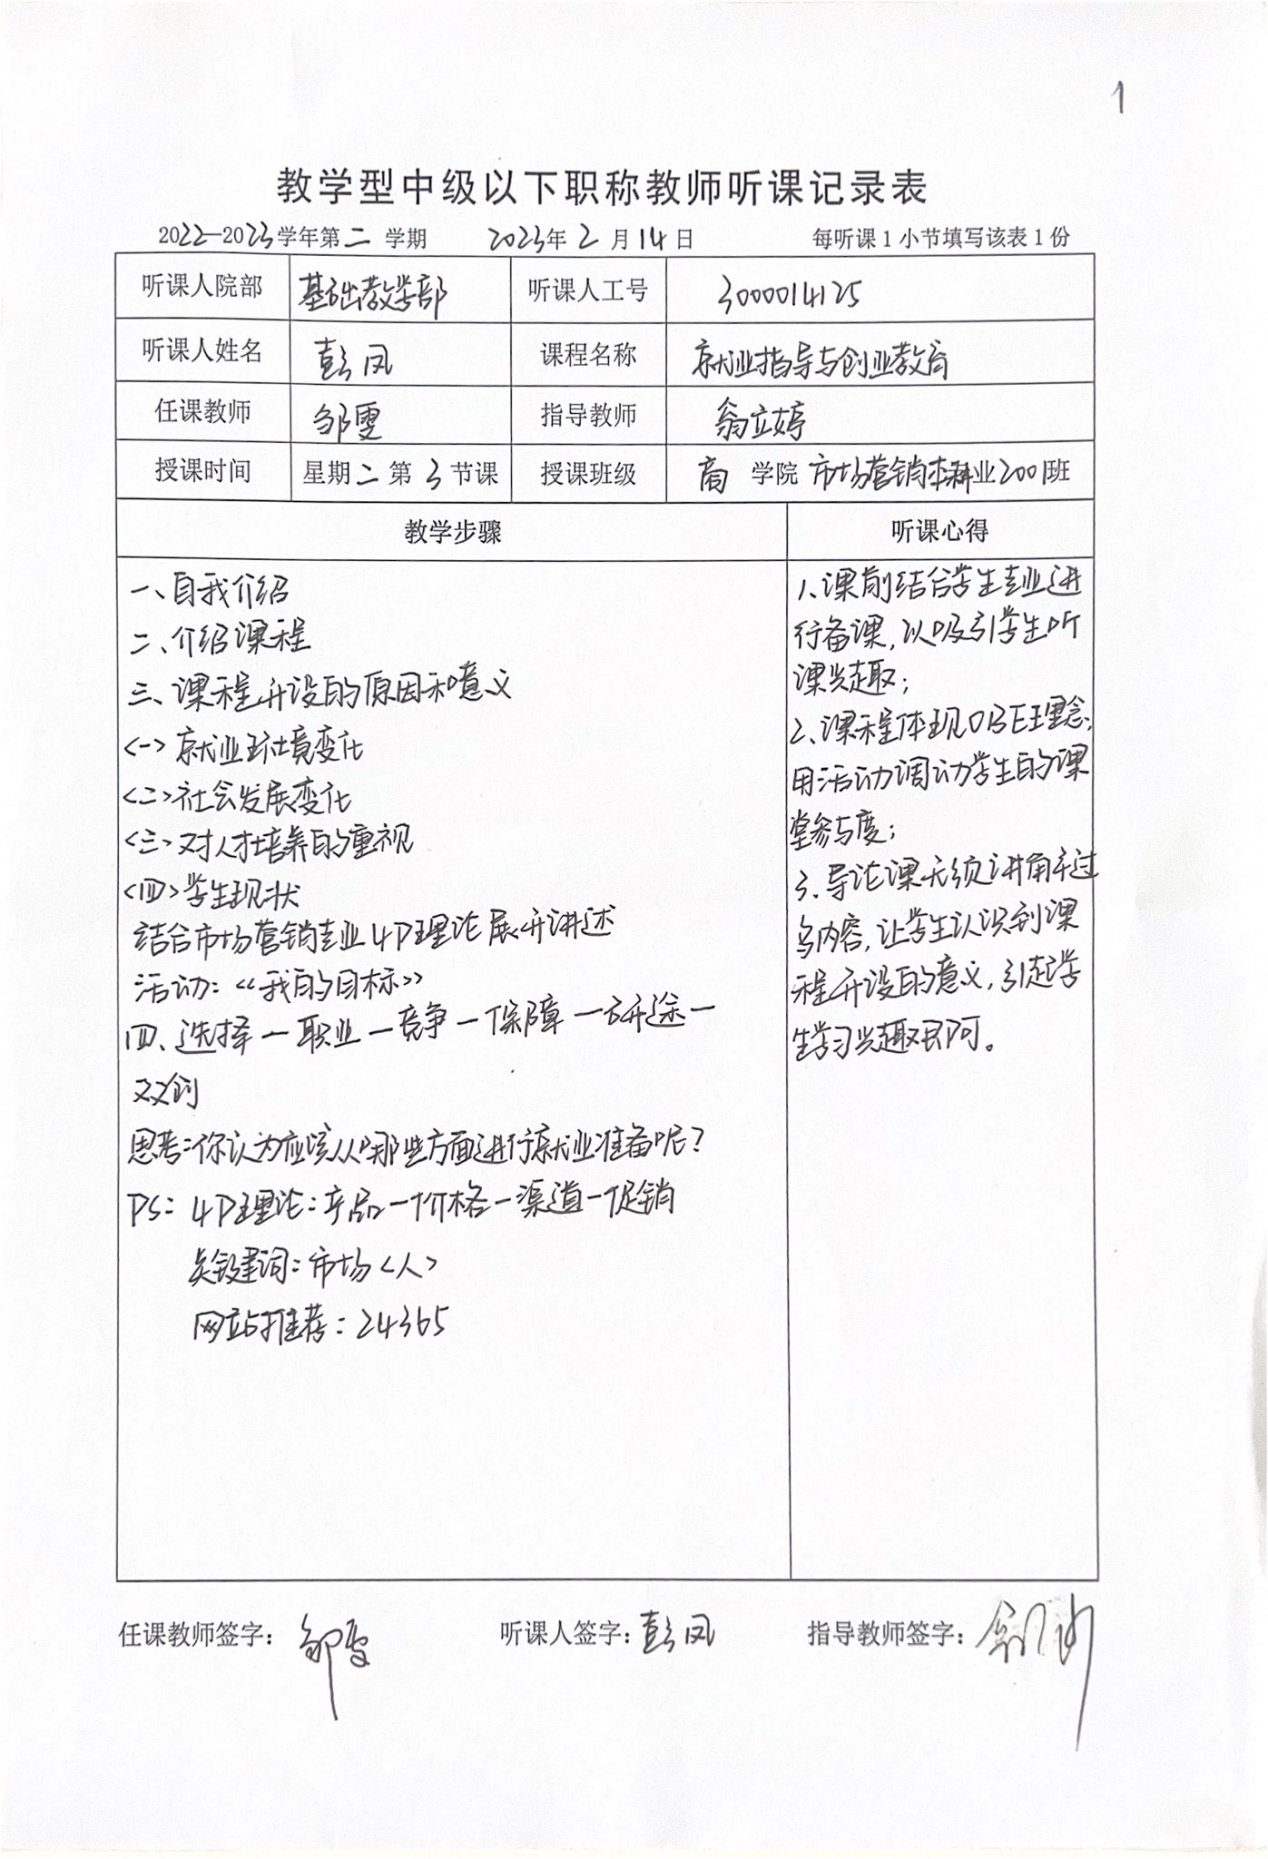 1
教学型中级以下职称教师听课记录表
2022—2023学年第二学期 2023年2月14日 每听课1小节填写该表1份
听课人院部 基础教学部 听课人工号 3000014125
听课人姓名 彭凤 课程名称 就业指导与创业教育
任课教师 邹雯 指导教师 翁立婷
授课时间 星期二第3节课 授课班级 商学院市场营销本科业2001班
教学步骤 听课心得
一、自我介绍
二、介绍课程
三、课程开设的原因和意义
<一>就业环境变化
<二>社会发展变化
<三>对人才培养的重视
<四>学生现状
结合市场营销专业4P理论展开讲述
活动:《我的目标》
四、选择—职业—竞争—保障—研途—
双创
思考:你认为应该从哪些方面进行就业准备呢?
PS: 4P理论:产品—价格—渠道—促销
关键词:市场<人>
网站推荐:24365
1、课前结合学生专业进
行备课,以吸引学生听
课兴趣;
2、课程体现OBE理念,
用活动调动学生的课
堂参与度;
3、导论课无须讲解过
多内容,让学生认识到课
程开设的意义,引起学
生学习兴趣即可。
任课教师签字:邹雯 听课人签字:彭凤 指导教师签字: